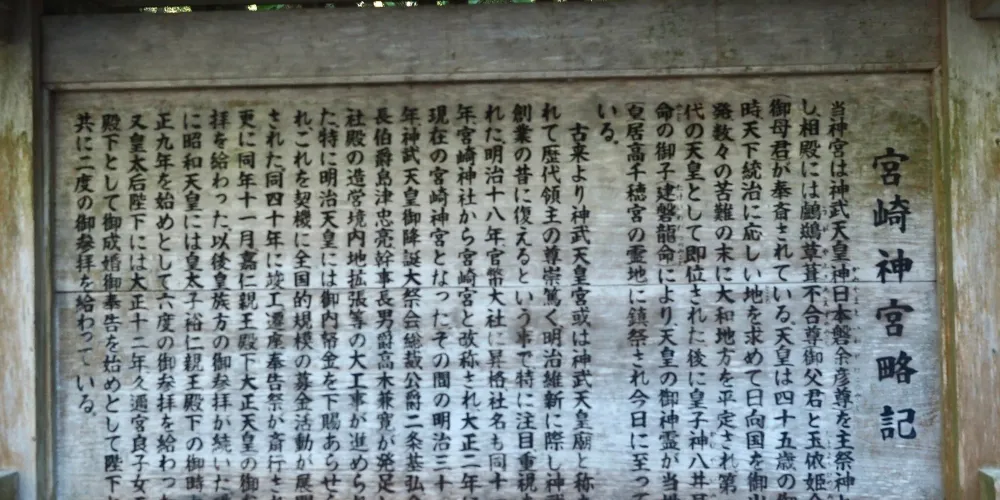 宮崎神宮略記
当神宮は神武天皇神日本磐余彦尊を主祭神
し相殿には鸕鷀草葺不合尊御父君と玉依姫
御母君が奉斎されている、天皇は四十五歳の
時天下統治に応しい地を求めて日向国を御
発数々の苦難の末に大和地方を平定され第
代の天皇として即位された後に皇子神八井
命の御子建磐龍命により、天皇の御神霊が当
皇居高千穂宮の霊地に鎮祭され今日に至っ
いる。
古来より神武天皇宮或は神武天皇廟と称
れて歴代領主の尊崇篤く明治維新に際し神
創業の昔に復えるという事で特に注目重視
れた明治十八年官幣大社に昇格社名も同十
年宮崎神社から宮崎宮と改称され大正二年に
現在の宮崎神宮となった、その間の明治三十
年神武天皇御降誕大祭会総裁公爵二条基弘
長伯爵島津忠亮幹事長男爵高木兼寛が発足
社殿の造営境内地拡張等の大工事が進めら
た特に明治天皇には御内帑金を下賜あらせ
れこれを契機に全国的規模の募金活動が展
された、同四十年に竣工遷座奉告祭が斎行さ
更に同年十一月嘉仁親王殿下大正天皇の御
拝を給わった、以後皇族方の御参拝が続いた
に昭和天皇には皇太子裕仁親王殿下の御時
正九年を始めとして六度の御参拝を給わっ
又皇太后陛下には大正十二年久邇宮良子女
殿下として御成婚御奉告を始めとして陛下
共に二度の御参拝を給わっている。